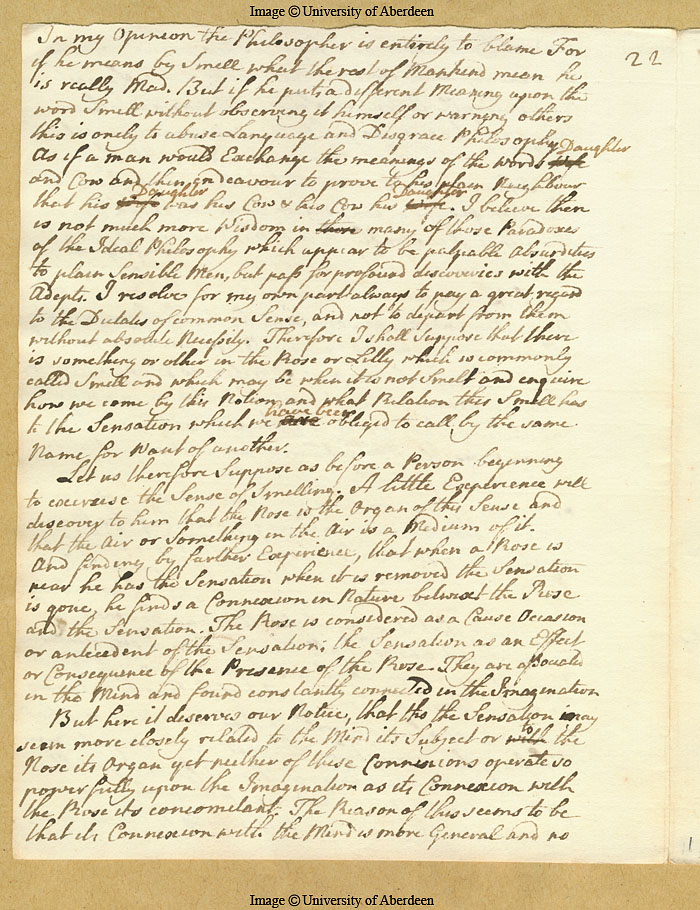 Image © University of Aberdeen
22
In my Opinion the Philosopher is entirely to blame For
if he means by Smell what the rest of Mankind mean he
is really Mad. But if he puts a different Meaning upon the
word Smell without observing it himself or warning others
this is onely to abuse Language and Disgrace Philosophy
Daughter
As if a man would Exchange the meanings of the words Wife
and Cow and then endeavour to prove to his plain Neighbour
Daughter Daughter
that his Wife was his Cow & his Cow his Wife. I believe there
is not much more Wisdom in there many of those Paradoxes
of the Ideal Philosophy which appear to be palpable Absurdities
to plain Sensible Men, but pass for profound discoveries with the
Adepts. I resolve for my own part always to pay a great regard
to the Dictates of common Sense, and not to depart from them
without absolute Necessity. Therefore I shall Suppose that there
is something or other in the Rose or Lilly which is commonly
called Smell and which may be when it is not Smelt and enquire
how we come by this Notion, and what Relation this Smell has
have been
to the Sensation which we are obliged to call by the same
Name for Want of another.
Let us therefore Suppose as before a Person beginning
to exercise the Sense of Smelling. A little Experience will
discover to him that the Nose is the Organ of this Sense and
that the Air or Something in the Air is a Medium of it.
And finding by farther Experience, that when a Rose is
near he has the Sensation when it is removed the Sensation
is gone, he finds a Connexion in Nature betwixt the Rose
and the Sensation. The Rose is considered as a Cause Occasion
or antecedent of the Sensation; the Sensation as an Effect
or Consequence of the Presence of the Rose. They are associated
in the Mind and found constantly connected in the Imagination
But here it deserves our Notice, that tho the Sensation may
to
seem more closely related to the Mind its Subject or with the
Nose its Organ yet neither of these Connexions operate so
powerfully upon the Imagination as its Connexion with
the Rose its concomitant. The Reason of this seems to be
that its Connexion with the Mind is more General and no
Image © University of Aberdeen